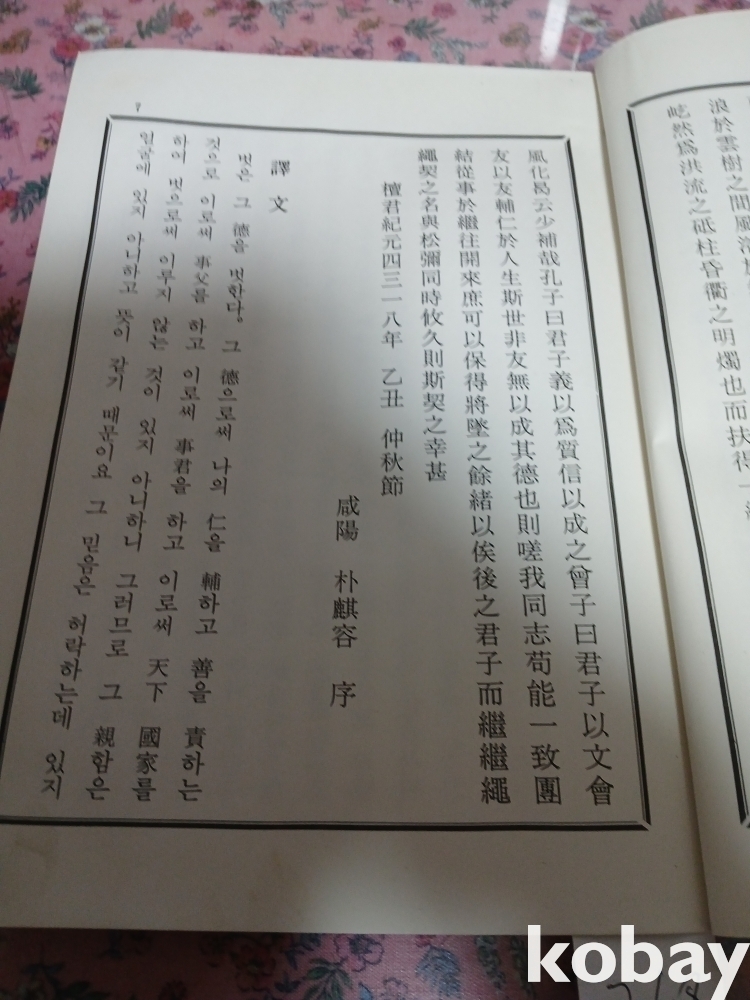 浪於雲樹之間風
屹然爲洪流之砥柱昏衢之明燭也而扶得一
風化曷云少補哉孔子曰君子義以爲質信以成之曾子曰君子以文會
友以友輔仁於人生斯世非友無以成其德也則嗟我同志苟能一致團
結從事於繼往開來庶可以保得將墜之餘緖以俟後之君子而繼繼繩
繩契之名與松彌同時攸久則斯契之幸甚
檀君紀元四三一八年 乙丑 仲秋節
咸陽 朴麒容 序
譯文
벗은 그 德을 벗한다。 그 德으로써 나의 仁을 輔하고 善을 責하는
것으로 이로써 事父를 하고 이로써 事君을 하고 이로써 天下 國家를
하여 벗으로써 이루지 않는 것이 있지 아니하니 그러므로 그 親함은
얼굴에 있지 아니하고 뜻이 같기 때문이요 그 믿음은 허락하는데 있지
7
kobay